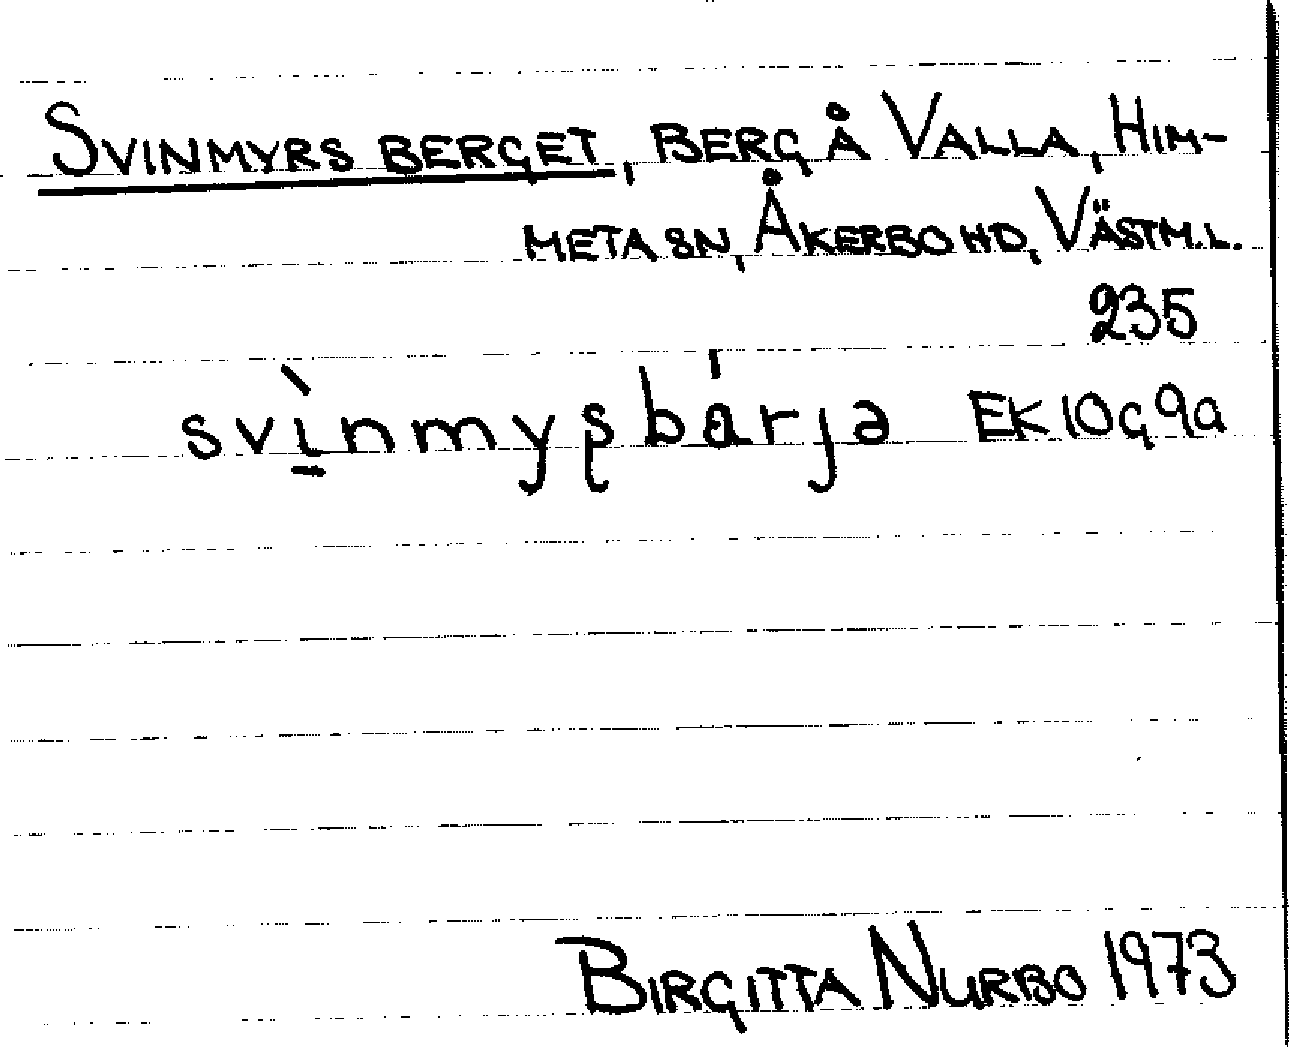 SVINMYRS BERGET, BERG Å VALLA, HIM-
META SN, ÅKERBO HD, VÄSTM.L.
235
svı̠̀nmyʂbárjə EK 10G9a
BIRGITTA NURBO 1973